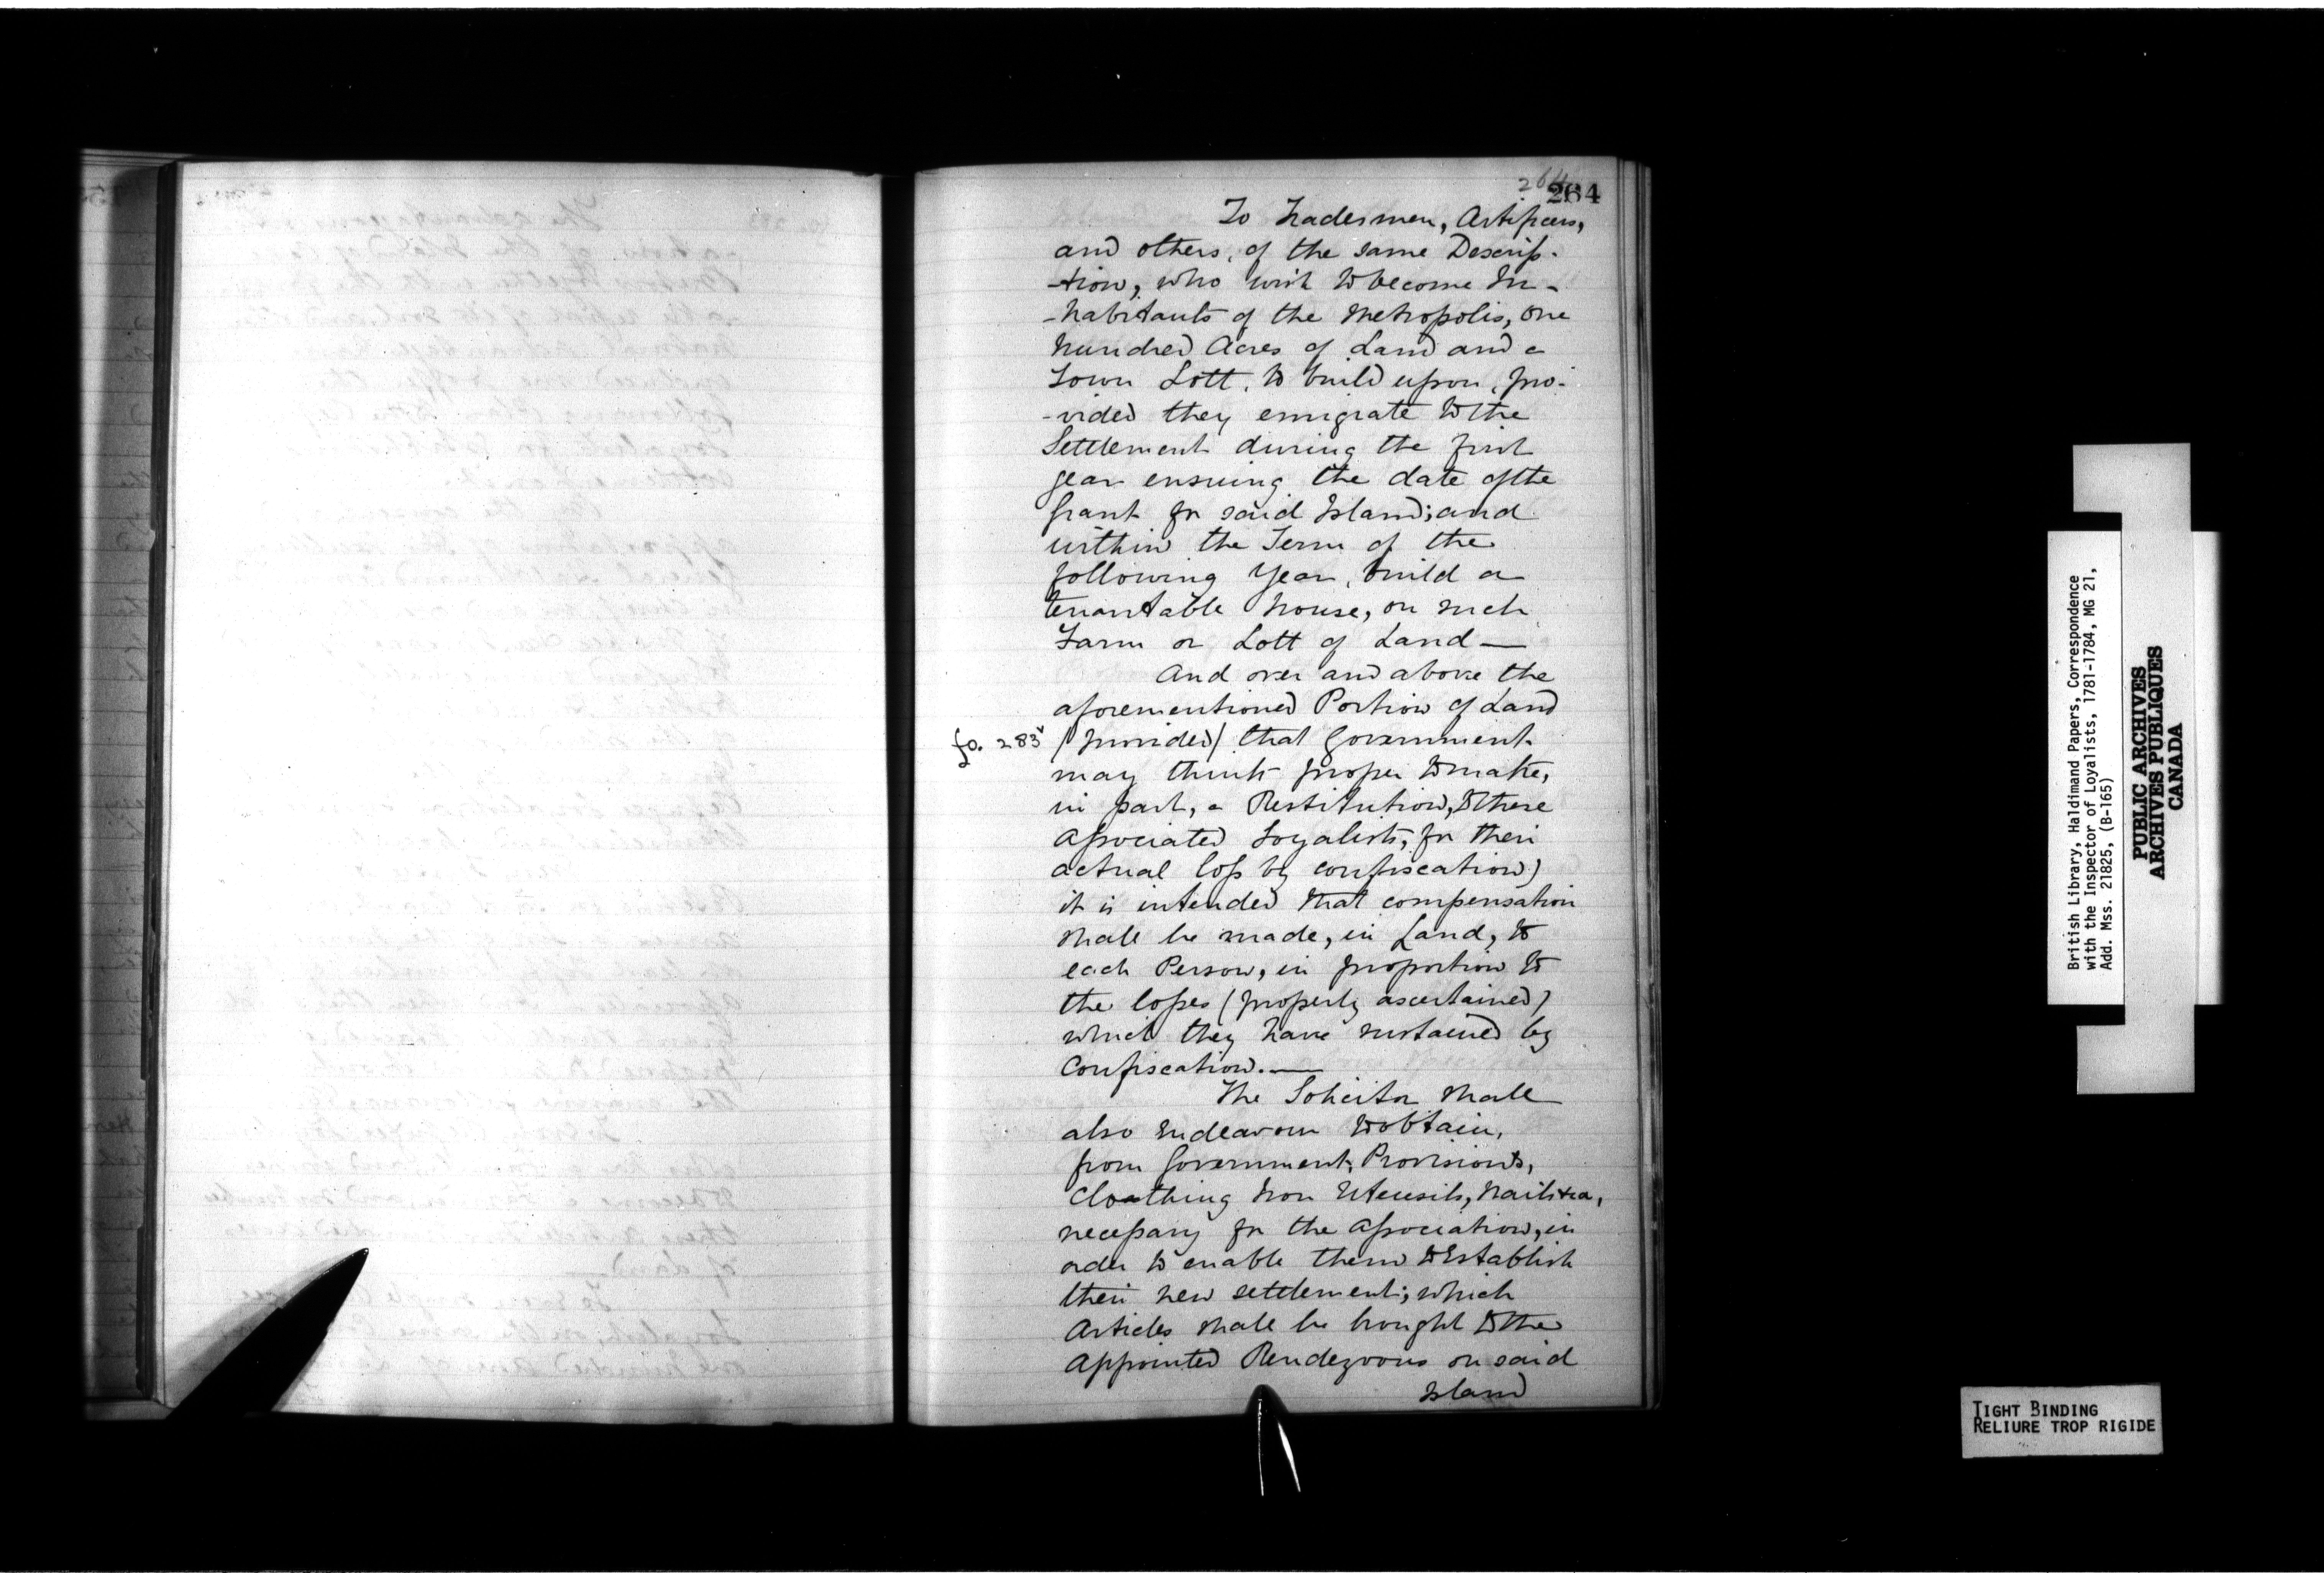 264
264
To Tradesmen, Artificers,
and others, of the same Descrip-
-tion, who wish to become In-
-habitants of the Metropolis, One
hundred Acres of Land and a
Town Lott, to build upon, pro-
-vided they emigrate to the
Settlement during the first
year ensuing the date of the
Grant for said Island; and
within the Term of the
following Year, build a
tenantable house, on such
Farm or Lott of Land —
And over and above the
aforementioned Portion of Land
fo. 283v (provided) that Government
may think proper to make,
in part, a Restitution, to these
Associated Loyalists, for their
actual loss by confiscation)
it is intended that compensation
shall be made, in Land, to
each Person, in proportion to
the losses (properly ascertained)
which they have sustained by
Confiscation. —
The Solicitor shall
also Endeavour to obtain,
from Government, Provisions,
Cloathing Iron Utensils, Nails &ca,
necessary for the Association, in
order to enable them to Establish
their new settlement; which
Articles shall be brought to the
appointed Rendezvous on said
Island
British Library, Haldimand Papers, Correspondence
with the Inspector of Loyalists, 1781-1784, MG 21,
Add. Mss. 21825, (B-165)
PUBLIC ARCHIVES
ARCHIVES PUBLIQUES
CANADA
TIGHT BINDING
RELIURE TROP RIGIDE